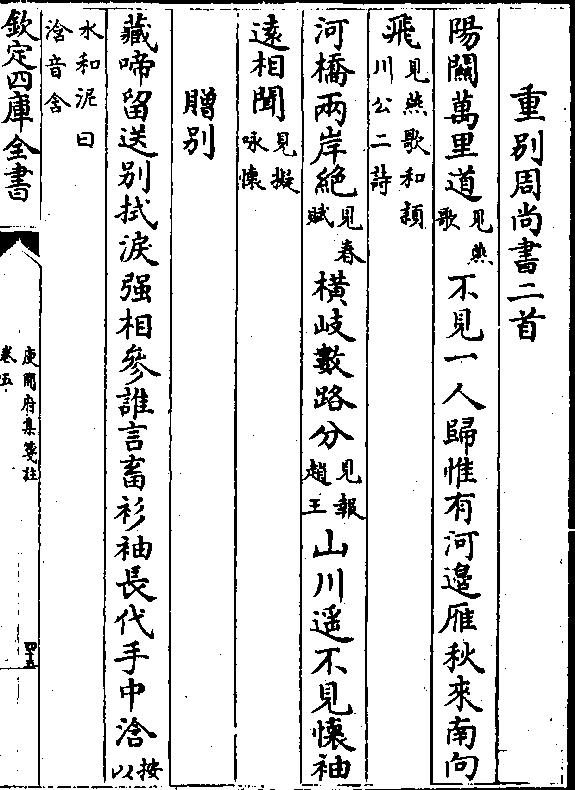 重别周尚書二首
陽關萬里道見燕歌不見一人歸惟有河邉雁秋來南向
飛見燕歌和潁川公二詩
河橋兩岸絶見春賦橫岐數路分見報趙王山川遥不見懷袖
逺相聞見擬咏懷
贈别
藏啼留送别拭淚强相參誰言畜衫袖長代手中浛按以
水和泥曰浛音含
欽定四庫全書
庾開府集箋註
卷五